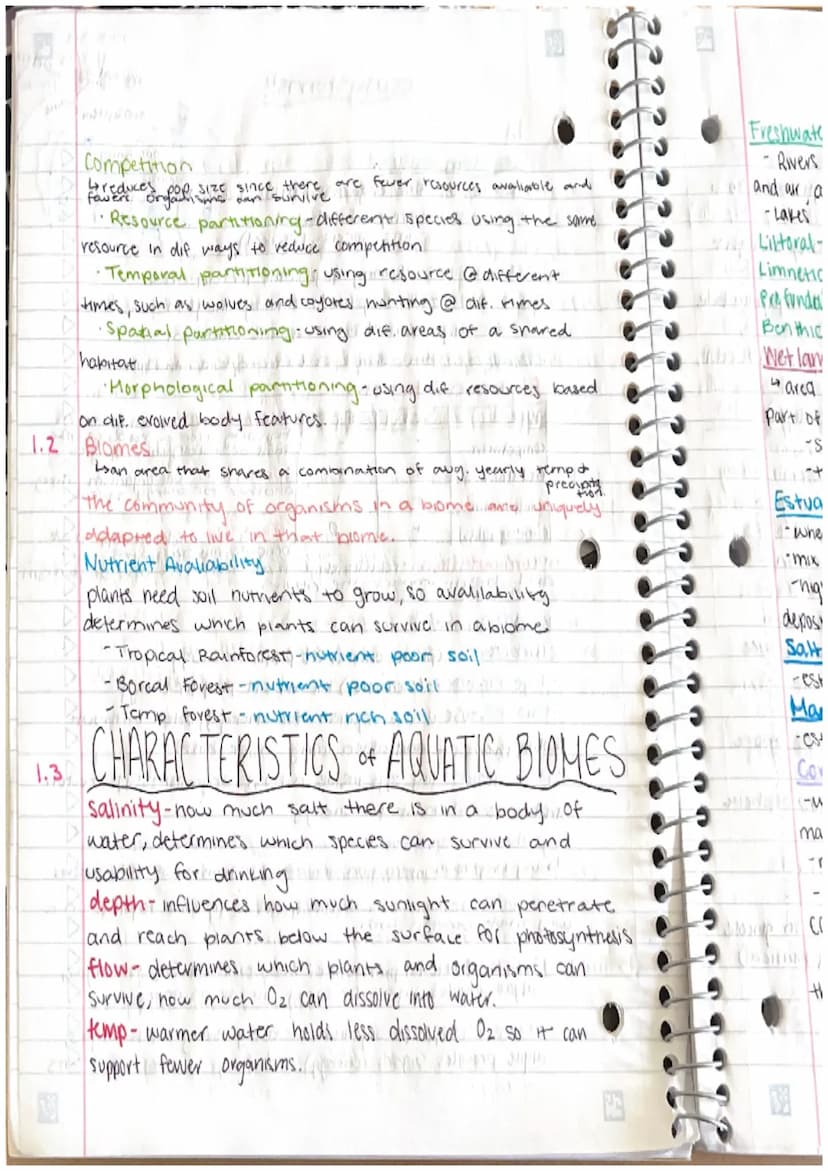 Competition
↳reduces pop size since there are fewer resources avaliable and
fewer organisms can survive
· Resource partitioning - different species using the same
resource in dif ways to reduce competition
· Temporal partitioning: using resource @ different
times, such as wolves and coyotes hunting @ dif. times
· Spatial partitioning: using dif. areas of a shared
habitat
· Morphological partitioning - using dif resources based
on dif. evolved body features.
1.2 Biomes
↳an area that shares a combination of avg. yearly temp +
precipitation
the community of organisms in a biome are uniquely
adapted to live in that biome.
Nutrient Avaliability
plants need soil nutrients to grow, so availability
determines which plants can survive in a biome
- Tropical Rainforest - nutrient poor soil
- Boreal Forest - nutrient poor soil
- Temp forest - nutrient rich soil
1.3 CHARACTERISTICS of AQUATIC BIOMES
salinity - how much salt there is in a body of
water, determines which species can survive and
usability for drinking
depth - influences how much sunlight can penetrate
and reach plants below the surface for photosynthesis
flow - determines which plants and organisms can
survive, how much O2 can dissolve into water.
temp - warmer water holds less dissolved O2 so it can
support fewer organisms.
Freshwate
- Rivers
and air, a
- Lakes
Littoral-
Limnetic
Profundal
Benthic
Wetlan
↳ area
part of
-s
-t
Estua
- whe
- mix
- hig
depos
Salt
- est
Ma
- es
Co
-w
ma
-r
-
co
th